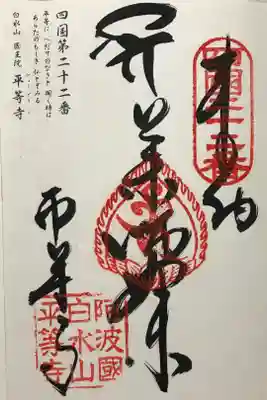 四國二十二番
奉納
薬師如来
平等寺
阿波國
白水山
平等寺
四国第二十二番
平等に へだてのなきと 聞く時は
あらたのもしき 仏とぞみる
白水山 医王院 平等寺